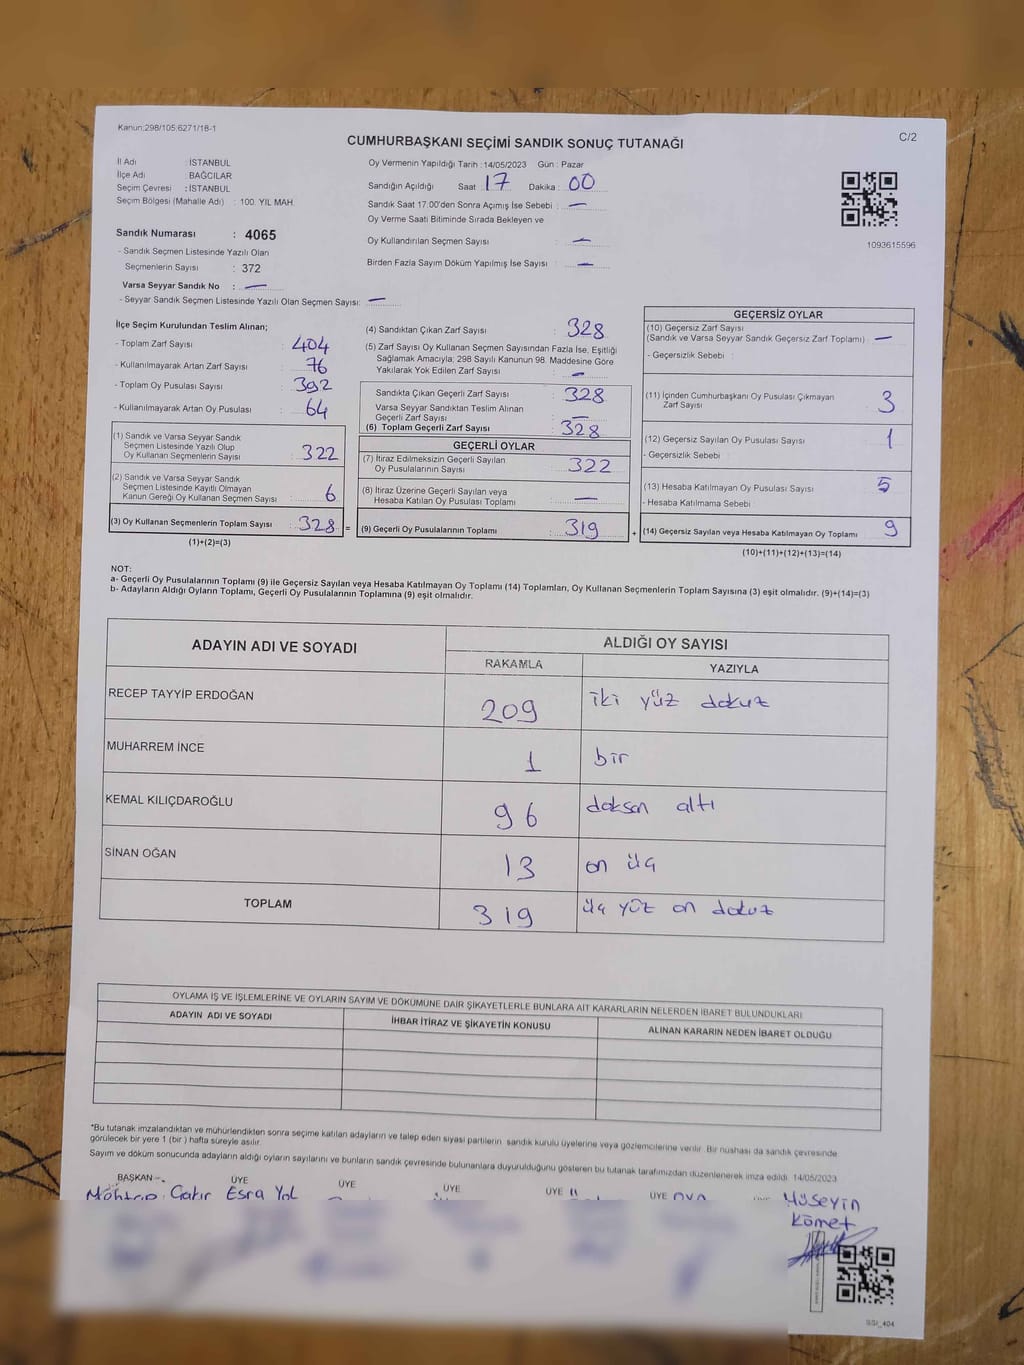 Kanun:298/105,6271/18-1
C/2
CUMHURBAŞKANI SEÇİMİ SANDIK SONUÇ TUTANAĞI
İl Adı : İSTANBUL
İlçe Adı : BAĞCILAR
Seçim Çevresi : İSTANBUL
Seçim Bölgesi (Mahalle Adı) : 100. YIL MAH.
Sandık Numarası : 4065
- Sandık Seçmen Listesinde Yazılı Olan
Seçmenlerin Sayısı : 372
Varsa Seyyar Sandık No : —
- Seyyar Sandık Seçmen Listesinde Yazılı Olan Seçmen Sayısı: —
Oy Vermenin Yapıldığı Tarih : 14/05/2023 Gün : Pazar
Sandığın Açıldığı Saat 17 Dakika : 00
Sandık Saat 17.00'den Sonra Açımış İse Sebebi : —
Oy Verme Saati Bitiminde Sırada Bekleyen ve
Oy Kullandırılan Seçmen Sayısı : —
Birden Fazla Sayım Döküm Yapılmış İse Sayısı : —
1093615596
İlçe Seçim Kurulundan Teslim Alınan;
- Toplam Zarf Sayısı : 404
- Kullanılmayarak Artan Zarf Sayısı : 76
- Toplam Oy Pusulası Sayısı : 392
- Kullanılmayarak Artan Oy Pusulası : 64
(1) Sandık ve Varsa Seyyar Sandık
Seçmen Listesinde Yazılı Olup
Oy Kullanan Seçmenlerin Sayısı : 322
(2) Sandık ve Varsa Seyyar Sandık
Seçmen Listesinde Kayıtlı Olmayan
Kanun Gereği Oy Kullanan Seçmen Sayısı : 6
(3) Oy Kullanan Seçmenlerin Toplam Sayısı : 328 =
(1)+(2)=(3)
(4) Sandıktan Çıkan Zarf Sayısı : 328
(5) Zarf Sayısı Oy Kullanan Seçmen Sayısından Fazla İse, Eşitliği
Sağlamak Amacıyla; 298 Sayılı Kanunun 98. Maddesine Göre
Yakılarak Yok Edilen Zarf Sayısı : —
Sandıkta Çıkan Geçerli Zarf Sayısı : 328
Varsa Seyyar Sandıktan Teslim Alınan
Geçerli Zarf Sayısı : —
(6) Toplam Geçerli Zarf Sayısı : 328
GEÇERLİ OYLAR
(7) İtiraz Edilmeksizin Geçerli Sayılan
Oy Pusulalarının Sayısı : 322
(8) İtiraz Üzerine Geçerli Sayılan veya
Hesaba Katılan Oy Pusulası Toplamı : —
(9) Geçerli Oy Pusulalarının Toplamı : 319 +
GEÇERSİZ OYLAR
(10) Geçersiz Zarf Sayısı
(Sandık ve Varsa Seyyar Sandık Geçersiz Zarf Toplamı) : —
- Geçersizlik Sebebi :
(11) İçinden Cumhurbaşkanı Oy Pusulası Çıkmayan
Zarf Sayısı : 3
(12) Geçersiz Sayılan Oy Pusulası Sayısı : 1
- Geçersizlik Sebebi :
(13) Hesaba Katılmayan Oy Pusulası Sayısı : 5
- Hesaba Katılmama Sebebi :
(14) Geçersiz Sayılan veya Hesaba Katılmayan Oy Toplamı : 9
(10)+(11)+(12)+(13)=(14)
NOT:
a- Geçerli Oy Pusulalarının Toplamı (9) ile Geçersiz Sayılan veya Hesaba Katılmayan Oy Toplamı (14) Toplamları, Oy Kullanan Seçmenlerin Toplam Sayısına (3) eşit olmalıdır. (9)+(14)=(3)
b- Adayların Aldığı Oyların Toplamı, Geçerli Oy Pusulalarının Toplamına (9) eşit olmalıdır.
ADAYIN ADI VE SOYADI
ALDIĞI OY SAYISI
RAKAMLA YAZIYLA
RECEP TAYYİP ERDOĞAN 209 iki yüz dokuz
MUHARREM İNCE 1 bir
KEMAL KILIÇDAROĞLU 96 doksan altı
SİNAN OĞAN 13 on üç
TOPLAM 319 üç yüz on dokuz
OYLAMA İŞ VE İŞLEMLERİNE VE OYLARIN SAYIM VE DÖKÜMÜNE DAİR ŞİKAYETLERLE BUNLARA AİT KARARLARIN NELERDEN İBARET BULUNDUKLARI
ADAYIN ADI VE SOYADI İHBAR İTİRAZ VE ŞİKAYETİN KONUSU ALINAN KARARIN NEDEN İBARET OLDUĞU
*Bu tutanak imzalandıktan ve mühürlendikten sonra seçime katılan adayların ve talep eden siyasi partilerin sandık kurulu üyelerine veya gözlemcilerine verilir. Bir nüshası da sandık çevresinde
görülecek bir yere 1 (bir) hafta süreyle asılır.
Sayım ve döküm sonucunda adayların aldığı oyların sayılarını ve bunların sandık çevresinde bulunanlara duyurulduğunu gösteren bu tutanak tarafımızdan düzenlenerek imza edildi. 14/05/2023
BAŞKAN ÜYE ÜYE ÜYE ÜYE ÜYE
Çakır Esra Yol
Hüseyin
Kömet
SSI_404